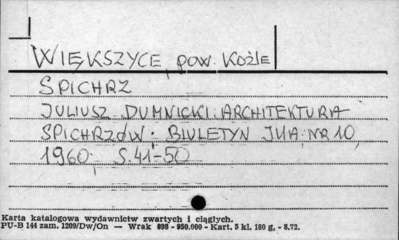 WIĘKSZYCE, pow. KOŹLE
SPICHRZ
JULIUSZ DUMNICKI: ARCHITEKTURA
SPICHRZÓW. BIULETYN JUA NR 10,
1960, S. 41-50
Karta katalogowa wydawnictw zwartych i ciągłych.
PU-B 144 zam. 1209/Dw/On — Wrak 898 - 950.000 - Kart. 5 kl. 180 g, - 8.72.